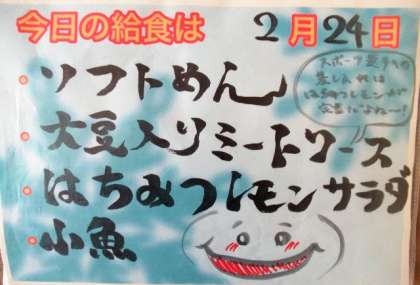 今日の給食は 2月24日
・ソフトめん
・大豆入りミートソース
・はちみつレモンサラダ
・小魚
スポーツ選手の
差し入れは
はちみつレモンが
定番だよねー!